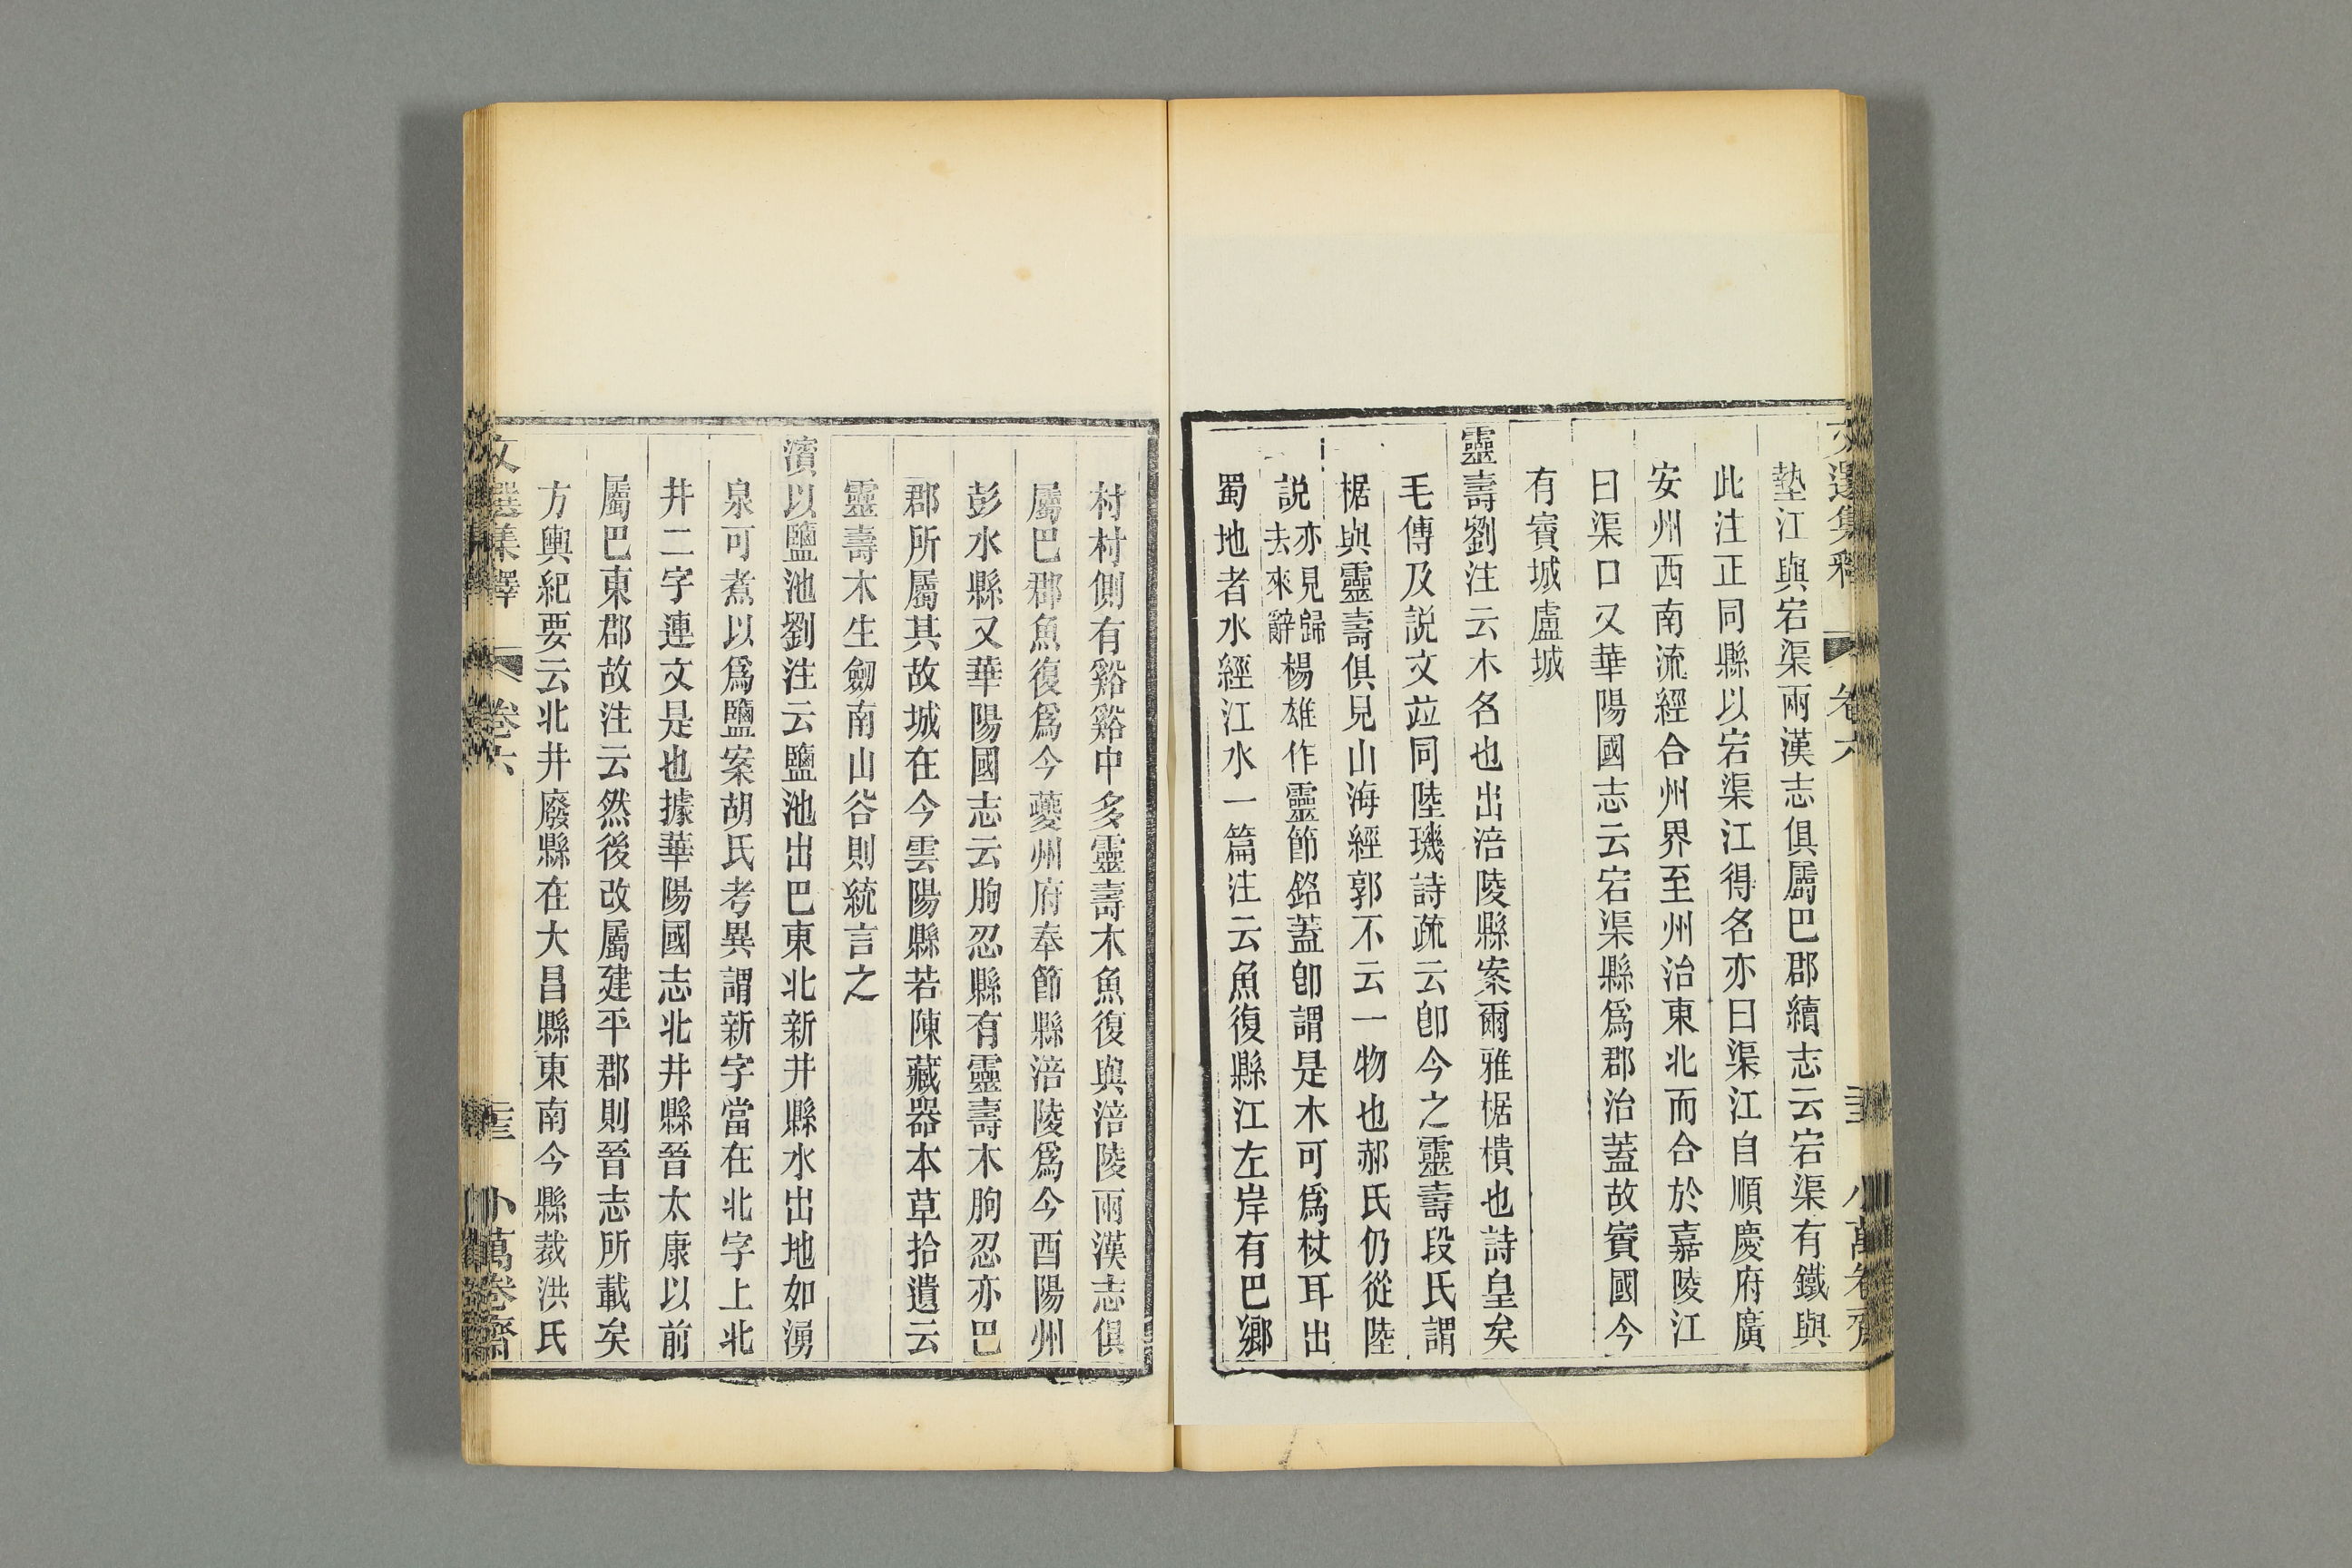 文選集釋 卷六 小萬卷齋
墊江與宕渠兩漢志俱屬巴郡續志云宕渠有鐵與
此注正同縣以宕渠江得名亦曰渠江自順慶府廣
安州西南流經合州界至州治東北而合於嘉陵江
曰渠口又華陽國志云宕渠縣爲郡治蓋故賨國今
有賨城盧城
靈壽劉注云木名也出涪陵縣案爾雅椐樻也詩皇矣
毛傳及說文竝同陸璣詩疏云卽今之靈壽段氏謂
椐與靈壽俱見山海經郭不云一物也郝氏仍從陸
說亦見歸去來辭楊雄作靈節銘蓋卽謂是木可爲杖耳出
蜀地者水經江水一篇注云魚復縣江左岸有巴鄉
村村側有谿谿中多靈壽木魚復與涪陵兩漢志俱
屬巴郡魚復爲今夔州府奉節縣涪陵爲今酉陽州
彭水縣又華陽國志云朐忍縣有靈壽木朐忍亦巴
郡所屬其故城在今雲陽縣若陳藏器本草拾遺云
靈壽木生劒南山谷則統言之
濱以鹽池劉注云鹽池出巴東北新井縣水出地如湧
泉可煮以爲鹽案胡氏考異謂新字當在北字上北
井二字連文是也據華陽國志北井縣晉太康以前
屬巴東郡故注云然後改屬建平郡則晉志所載矣
方輿紀要云北井廢縣在大昌縣東南今縣裁洪氏
文選集釋 卷六 小萬卷齋